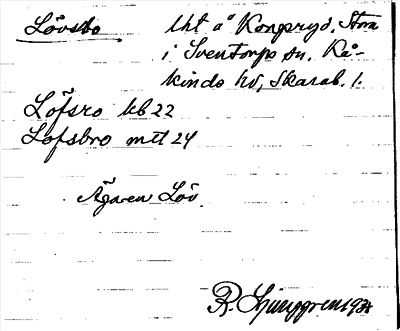 Lövsbo lht å Kongsryd, Stora
i Sventorps sn. Kå-
kinds hd, Skarab. l.
Löfsro kb 22
Lofsbro mtl 24
Ägaren Löv.
R. Ljunggren 1931